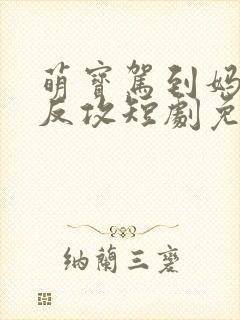 萌寶駕到媽
反攻短劇免
納蘭三麐